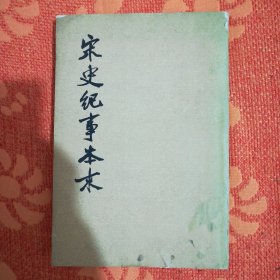 宋史紀事本末